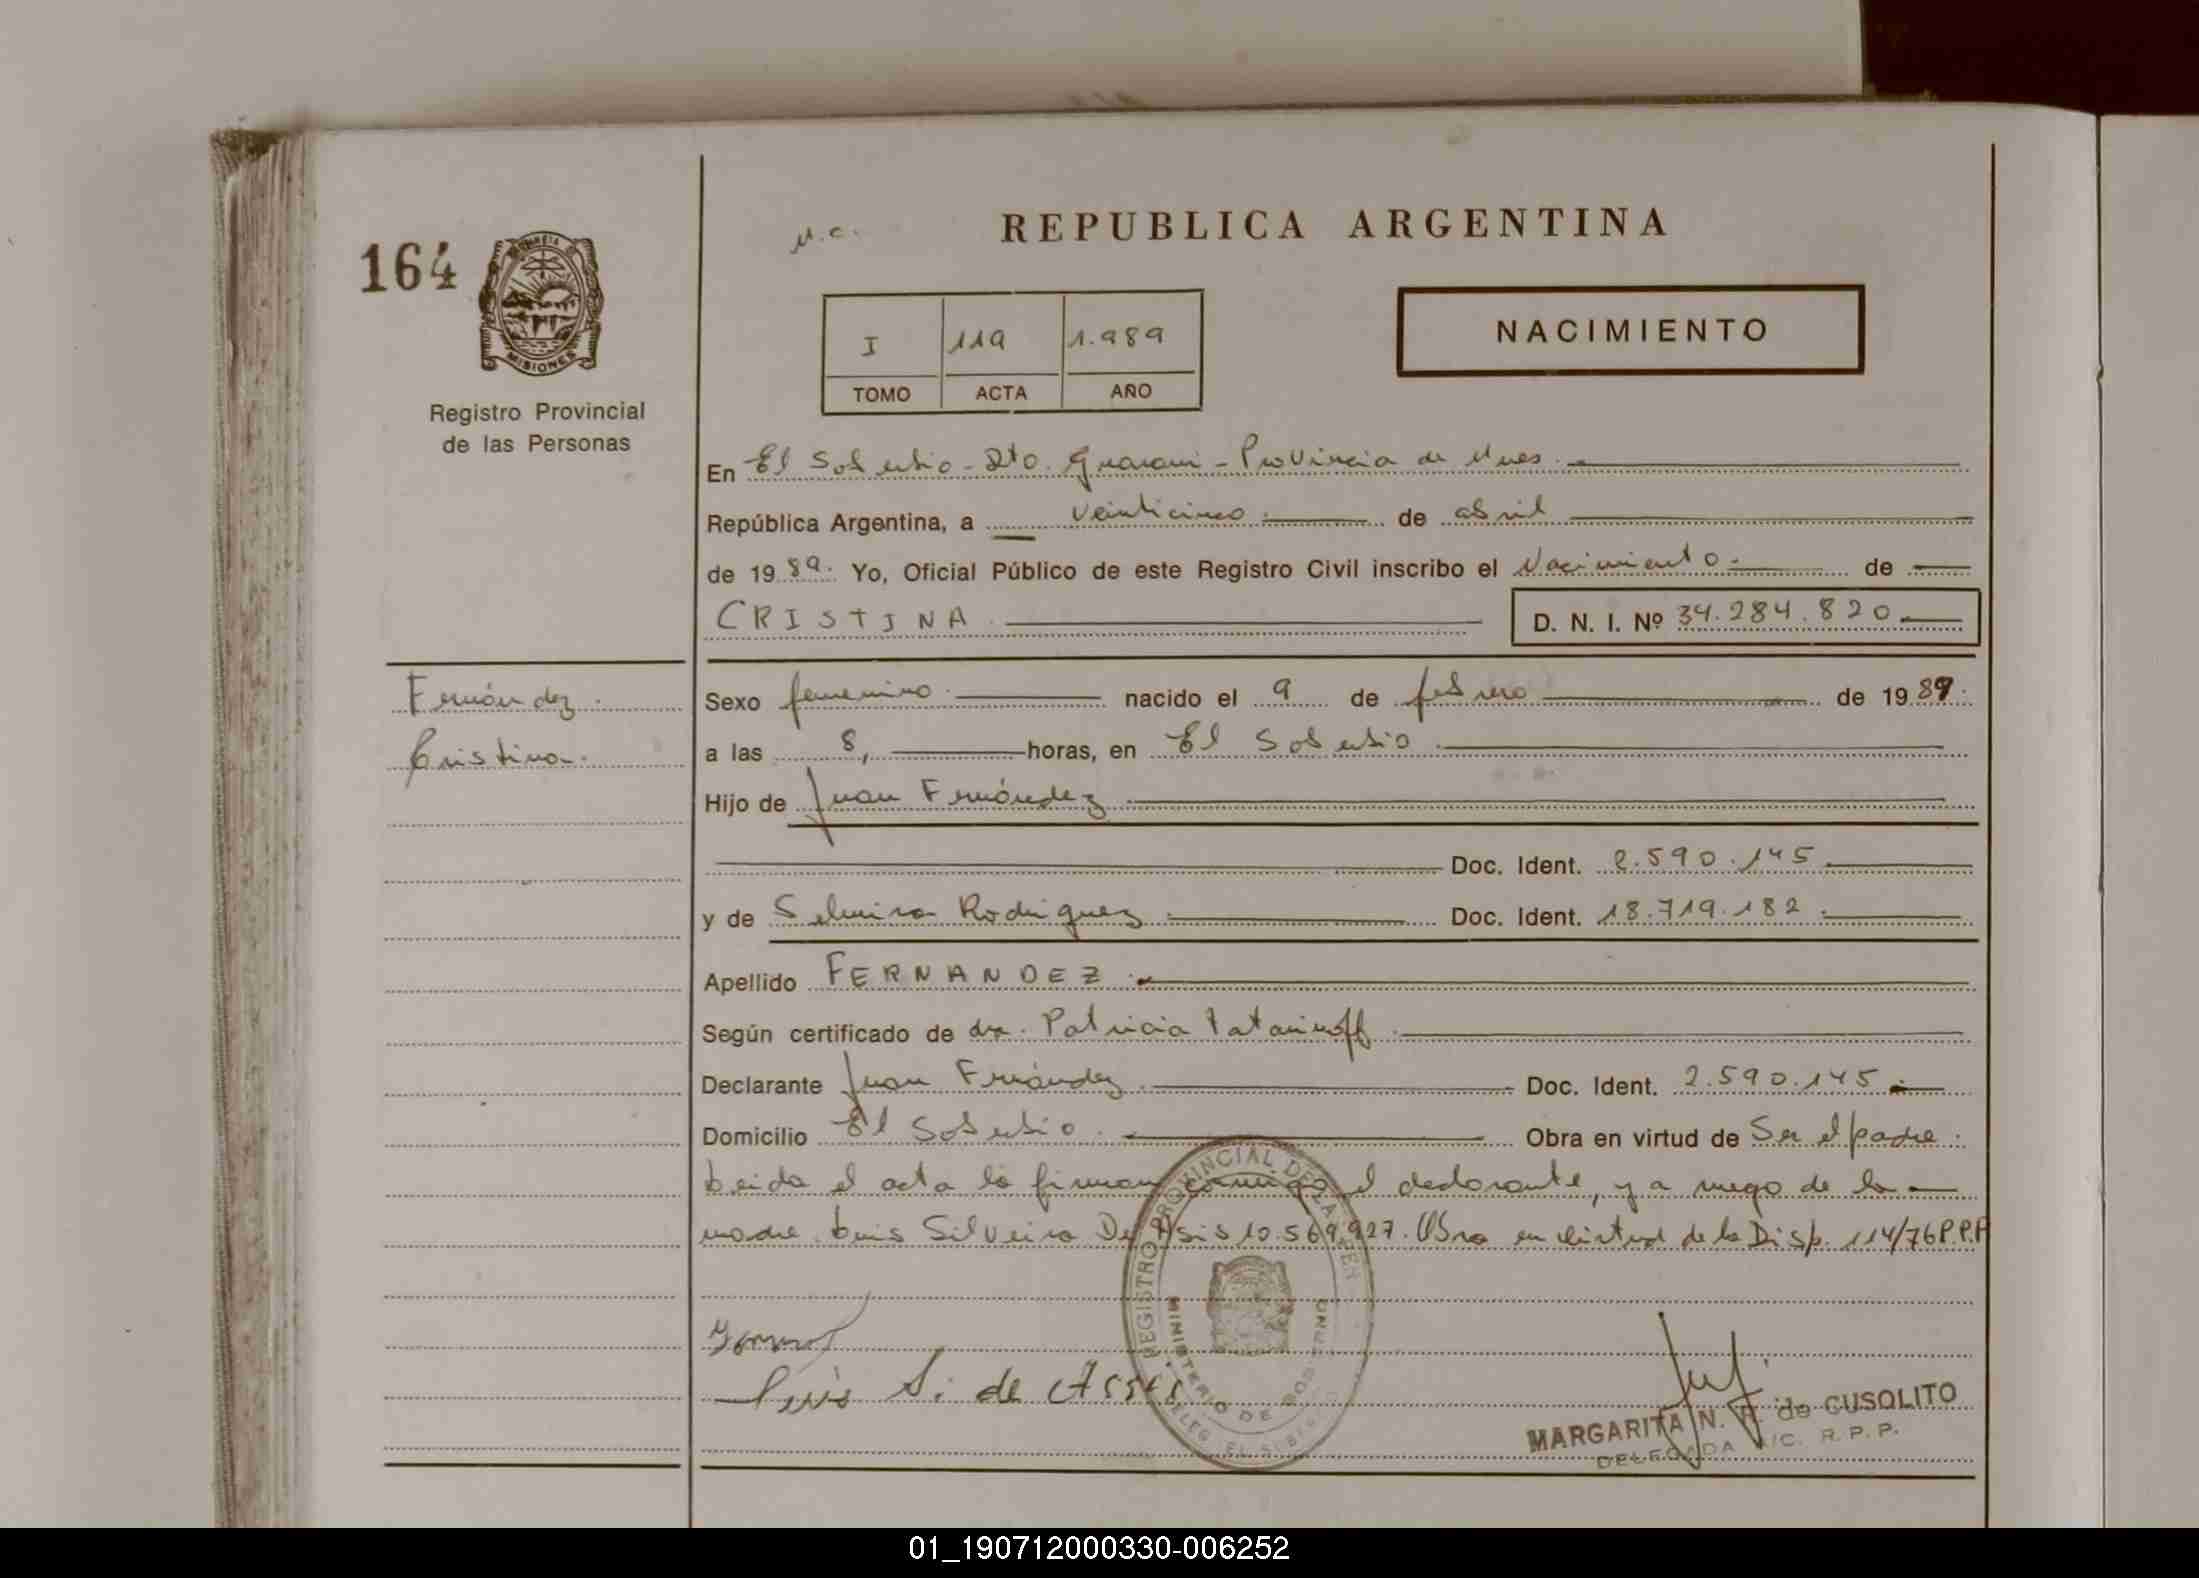 164
REPUBLICA ARGENTINA
MISIONES
Registro Provincial
de las Personas
I 119 1.989
TOMO ACTA AÑO
NACIMIENTO
En El Soberbio - Dto. Guaraní - Provincia de Mnes.
República Argentina, a veinticinco de abril
de 1989. Yo, Oficial Público de este Registro Civil inscribo el Nacimiento de
CRISTINA D. N. I. Nº 34.284.820
Fernández
Cristina
Sexo femenino nacido el 9 de febrero de 1989.
a las 8, horas, en El Soberbio
Hijo de Juan Fernández
Doc. Ident. 2.590.145
y de Selmira Rodriguez Doc. Ident. 18.719.182
Apellido FERNANDEZ
Según certificado de dra. Patricia
Declarante Juan Fernández Doc. Ident. 2.590.145
Domicilio El Soberbio Obra en virtud de Ser el padre.
Leida el acta la firman conmigo el declarante, y a ruego de la
madre Luis Silveira De Asis 10.569.927. Obra en virtud de la Disp. 114/76 P.P.P
REGISTRO PROVINCIAL DE LAS PER
MINISTERIO DE GOBIERNO
DELEG. EL SOBERBIO
Luis S. de Assis
MARGARITA N. de CUSOLITO
DELEGADA A/C. R.P.P.
01_190712000330-006252